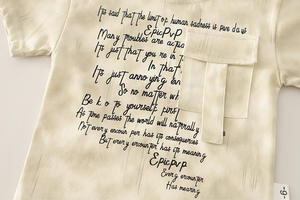 It's said that the limit of human sadness is five days
EpicPvP
Many troubles are actua
It's just that you're in t
In that
It's just annoying an
So no matter wh
Be k d to yourself first
As time passes the world will naturally
Not every encoun per has its consequences
But every encounter has its meaning
EpicPvP
Every encounter
Has meaning
-9-